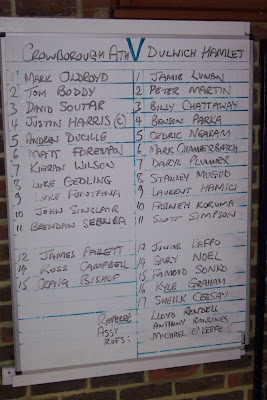 CROWBOROUGH ATH V DULWICH HAMLET
1 MARK OLDROYD
2 TOM BODDY
3 DAVID SOUTAR
4 JUSTIN HARRIS (C)
5 ANDREN DUCILLE
6 MATT FOREMAN
7 KIERAN WILSON
8 LUKE GEDLING
9 LUKE FONTANA
10 JOHN SINCLAIR
11 BRENDAN
12 JAMES
14 ROSS CAMPBELL
15 CRAIG BISHOP
1 JAMIE LUNAN
2 PETER MARTIN
3 BILLY CHATTAWAY
4 BENSON PARKA
5 CEDRIC NGAKAM
6 MARK CHAMBERBATCH
7 DARYL PLUMMER
8 STANLEY MUGUO
9 LAURENT HAMICI
10 KOROMA
11 SCOTT SIMPSON
12 JUNIOR KAFFO
14 GARY NOEL
15 SONKO
16 KYLE GRAHAM
17 SHEIK CEESAY
REFEREE LLOYD RENDELL
ASST REFS: ANTHONY RAWLINGS
MICHAEL O'KEEFE